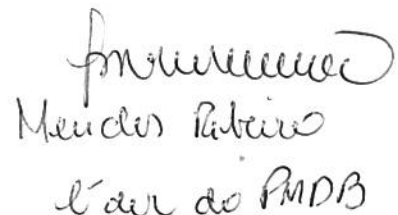 Mendes Ribeiro
Líder do PMDB